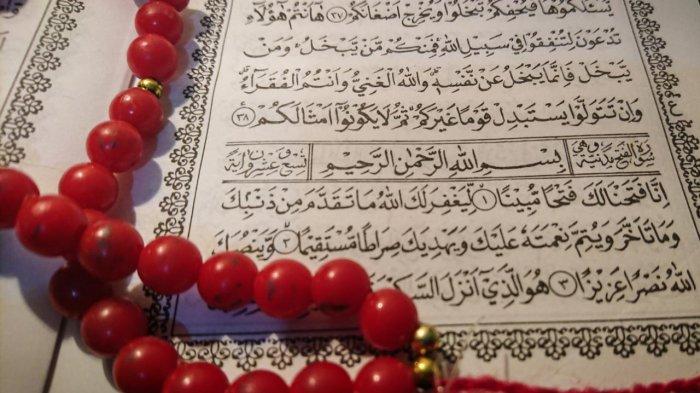 يَسْـَٔلْكُمُوهَا فَيُحْفِكُمْ تَبْخَلُوا وَيُخْرِجْ اَضْغَانَكُمْ ﴿٣٧﴾ هَٓا اَنْتُمْ هٰٓؤُ۬لَٓاءِ
تُدْعَوْنَ لِتُنْفِقُوا ف۪ي سَب۪يلِ اللّٰهِ فَمِنْكُمْ مَنْ يَبْخَلُ وَمَنْ
يَبْخَلْ فَاِنَّمَا يَبْخَلُ عَنْ نَفْسِه۪ وَاللّٰهُ الْغَنِيُّ وَاَنْتُمُ الْفُقَرَٓاءُ
وَاِنْ تَتَوَلَّوْا يَسْتَبْدِلْ قَوْمًا غَيْرَكُمْ ثُمَّ لَا يَكُونُٓوا اَمْثَالَكُمْ ﴿٣٨﴾
سورة الفتح مدنية وهي
بِسْمِ اللّٰهِ الرَّحْمٰنِ الرَّح۪يمِ
تسع وعشرون اية
اِنَّا فَتَحْنَا لَكَ فَتْحًا مُب۪ينًا ﴿١﴾ لِيَغْفِرَ لَكَ اللّٰهُ مَا تَقَدَّمَ مِنْ ذَنْبِكَ
وَمَا تَاَخَّرَ وَيُتِمَّ نِعْمَتَهُ عَلَيْكَ وَيَهْدِيَكَ صِرَاطًا مُسْتَق۪يمًا ﴿٢﴾ وَيَنْصُرَكَ
اللّٰهُ نَصْرًا عَز۪يزًا ﴿٣﴾ هُوَ الَّذ۪ٓي اَنْزَلَ السَّك